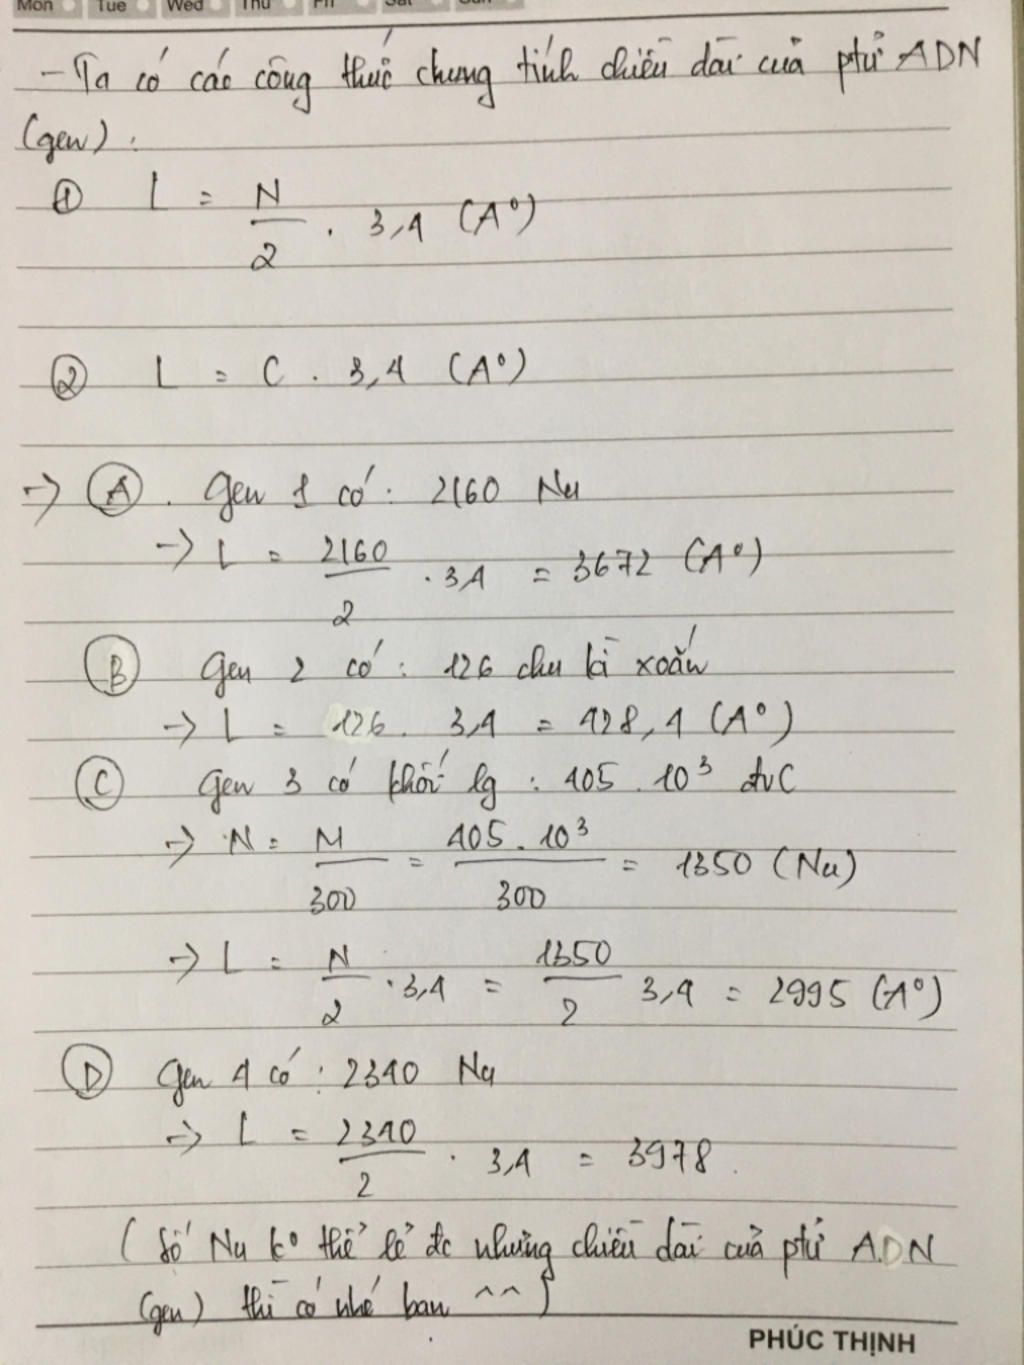 Mon Tue Wed Thu Fri Sat Sun
- Ta có các công thức chung tính chiều dài của ptử ADN
(gen) :
① L = N/2 . 3,4 (A°)
② L = C . 3,4 (A°)
→ Ⓐ . Gen 1 có : 2160 Nu
→ L = 2160/2 . 3,4 = 3672 (A°)
Ⓑ Gen 2 có : 126 chu kì xoắn
→ L = 126 . 3,4 = 428,4 (A°)
Ⓒ Gen 3 có khối lg : 405 . 10³ đvC
→ N = M/300 = 405 . 10³/300 = 1350 (Nu)
→ L = N/2 . 3,4 = 1350/2 3,4 = 2995 (A°)
Ⓓ Gen 4 có : 2340 Nu
→ L = 2340/2 . 3,4 = 3978 .
( Số Nu k° thể lẻ đc nhưng chiều dài của ptử ADN
(gen) thì có nhé bạn ^^ )
PHÚC THỊNH